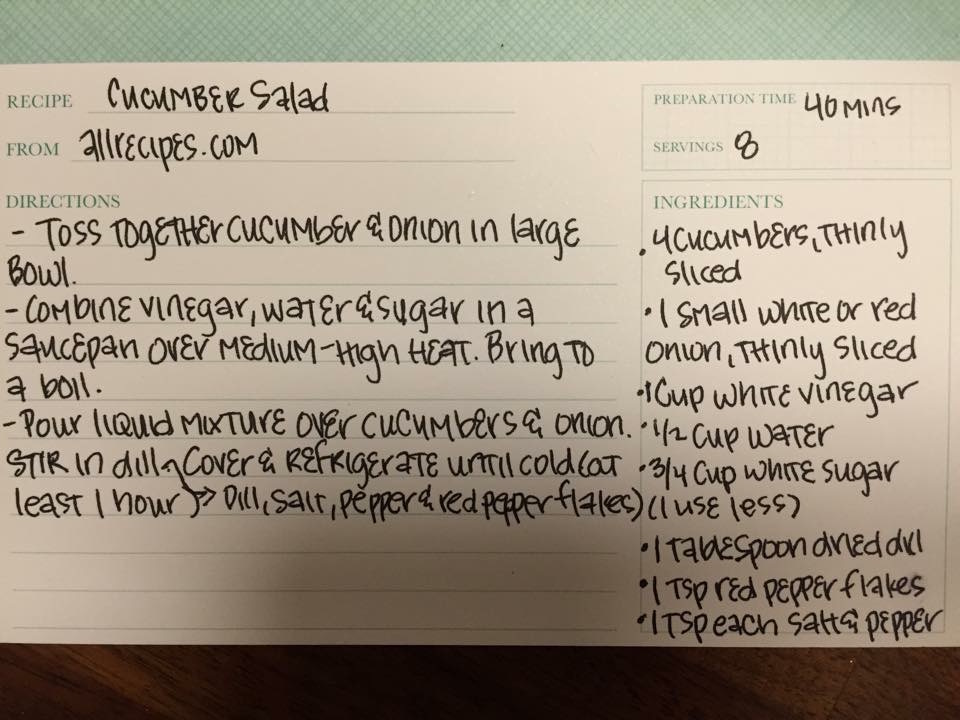 RECIPE CUCUMBER Salad
FROM allrecipes.com
PREPARATION TIME 40 MINS
SERVINGS 8
DIRECTIONS
- Toss TOGETHER CUCUMBER & ONION IN large
Bowl.
- COMBINE VINEgar, WATER & SUgar IN a
Saucepan OVER MEDIUM-HIGH HEAT. Bring TO
a boil.
- Pour liquid MIXTURE OVER CUCUMBERS & ONION.
STIR IN dill, Cover & REFRIGERATE UNTIL cold (at
least 1 hour) → Dill, salt, pepper & red pepper flakes)
INGREDIENTS
• 4 CUCUMBERS, THINly
Sliced
• 1 Small WHITE or red
ONION, THINly Sliced
• 1 Cup WHITE VINEgar
• 1/2 Cup WATER
• 3/4 Cup WHITE SUgar
(I USE less)
• 1 TABLESPOON dried dill
• 1 TSP red PEPPER flakes
• 1 TSP each Salt & PEPPER